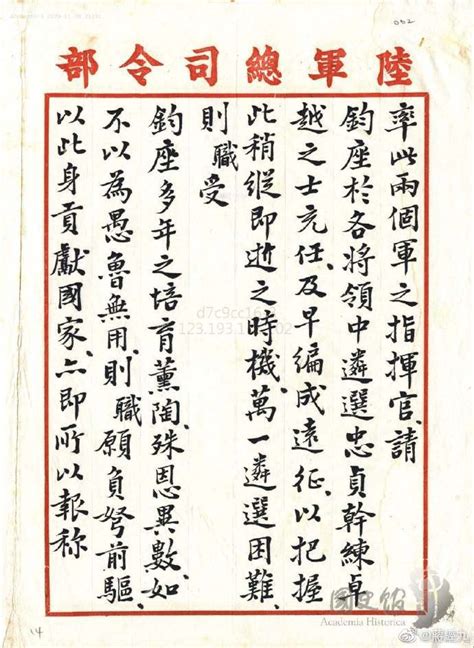 002
陸軍總司令部
率此兩個軍之指揮官、請
鈞座於各將領中遴選忠貞幹練卓
越之士充任、及早編成遠征、以把握
此稍縱即逝之時機、萬一遴選困難、
則職受
鈞座多年之培育薰陶、殊恩異數、如
不以為愚魯無用、則職願負弩前驅、
以此身貢獻國家、亦即所以報称
14
國史館
Academia Historica